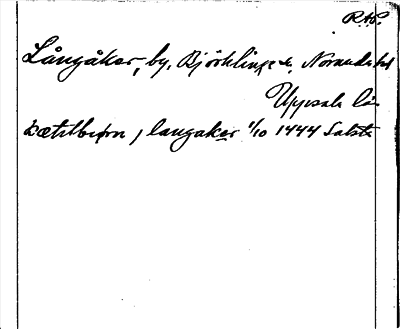 RAP.
Långåker, by, Björklinge s., Norunda hd
Uppsala län
Kætilbiørn j langaker 1/10 1444 Salsta